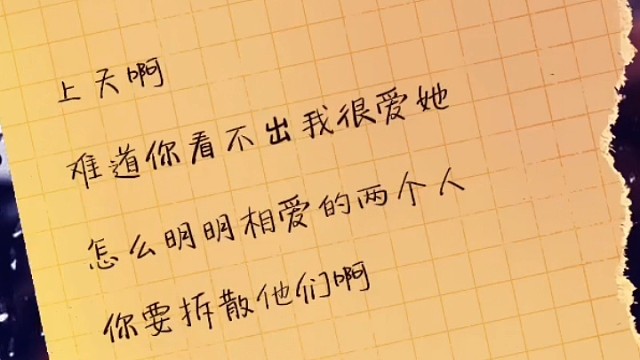 上天啊
难道你看不出我很爱她
怎么明明相爱的两个人
你要拆散他们啊